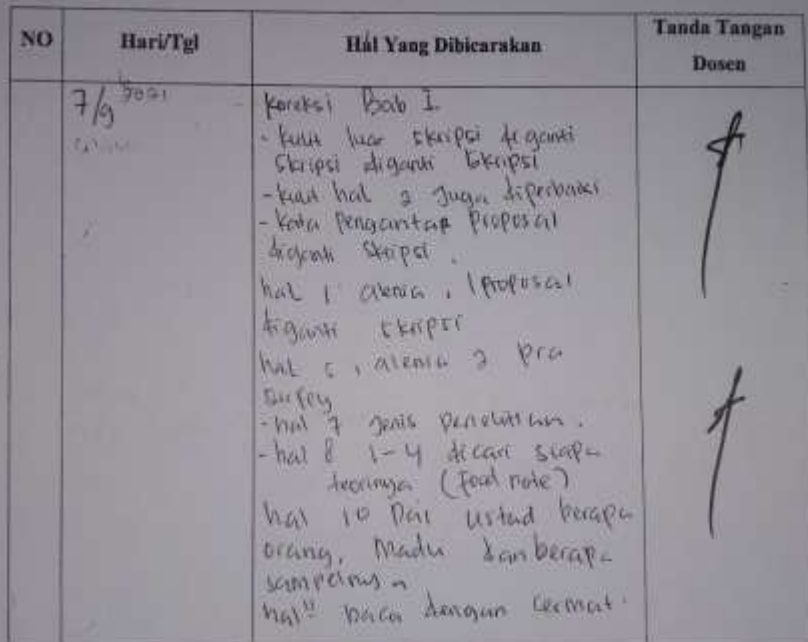 NO
Hari/Tgl
Hal Yang Dibicarakan
Tanda Tangan
Dosen
7/9 2021
Koreksi Bab I
- kulit luar skripsi diganti
skripsi diganti skripsi
- kulit hal 2 Juga diperbaiki
- Kata Pengantar Proposal
diganti skripsi.
hal 1 alenia, 1 proposal
diganti skripsi
hal 5, alenia 2 pra
surfey
- hal 7 Jenis Penelitian.
- hal 8 1-4 dicari siapa
teorinya (Food note)
hal 10 Dai ustad berapa
orang, Madu dan berapa
sampelnya
hal" baca dengan cermat.